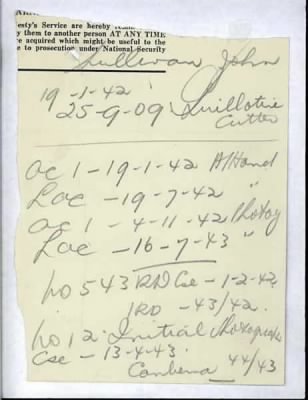 esty's Service are hereby
y them to another person AT ANY TIME
e acquired which might be useful to the
e to prosecution under National Security
Sullivan John
19-1-42
25-9-09 Guillotine
Cutter
AC 1-19-1-42 A/Hand
LAC-19-7-42 "
AC 1-4-11-42 Photog
LAC-16-7-43 "
No 543 Cse-1-2-42
1RD-43/42.
No 12. Initial Photographer
Cse-13-4-43.
Canberra 44/43